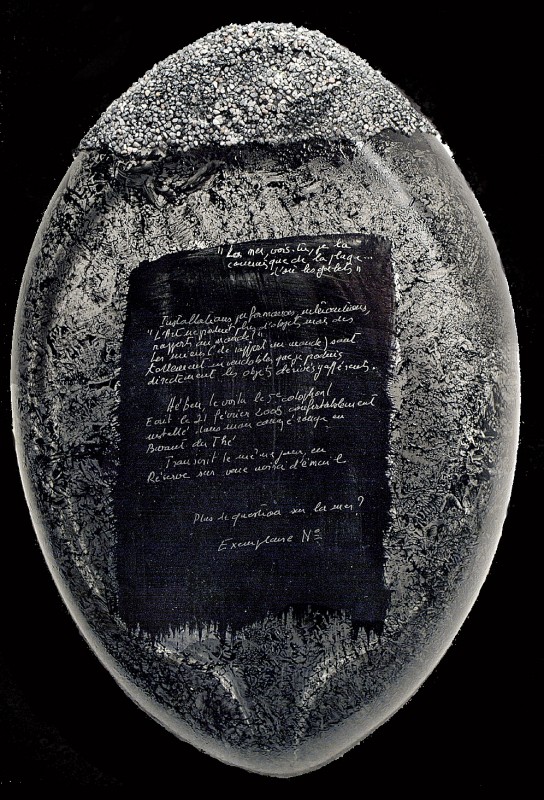 "La mer, vois-tu, je la
communique de la plage...
Voir les galets"
Installations, performances, interventions,
"L'Art ne produit plus d'objets mais des
rapports au monde"
Les miens (de rapport au monde) sont
tellement invendables que je produis
directement les objets dérivés y afférents.
Hé ben, le voilà le 5e colophon!
Ecrit le 21 février 2005 confortablement
installé dans mon canapé rouge en
Buvant du Thé
Transcrit le même jour, en
Réserve sur voile d'émail
Plus de question sur la mer?
Exemplaire No